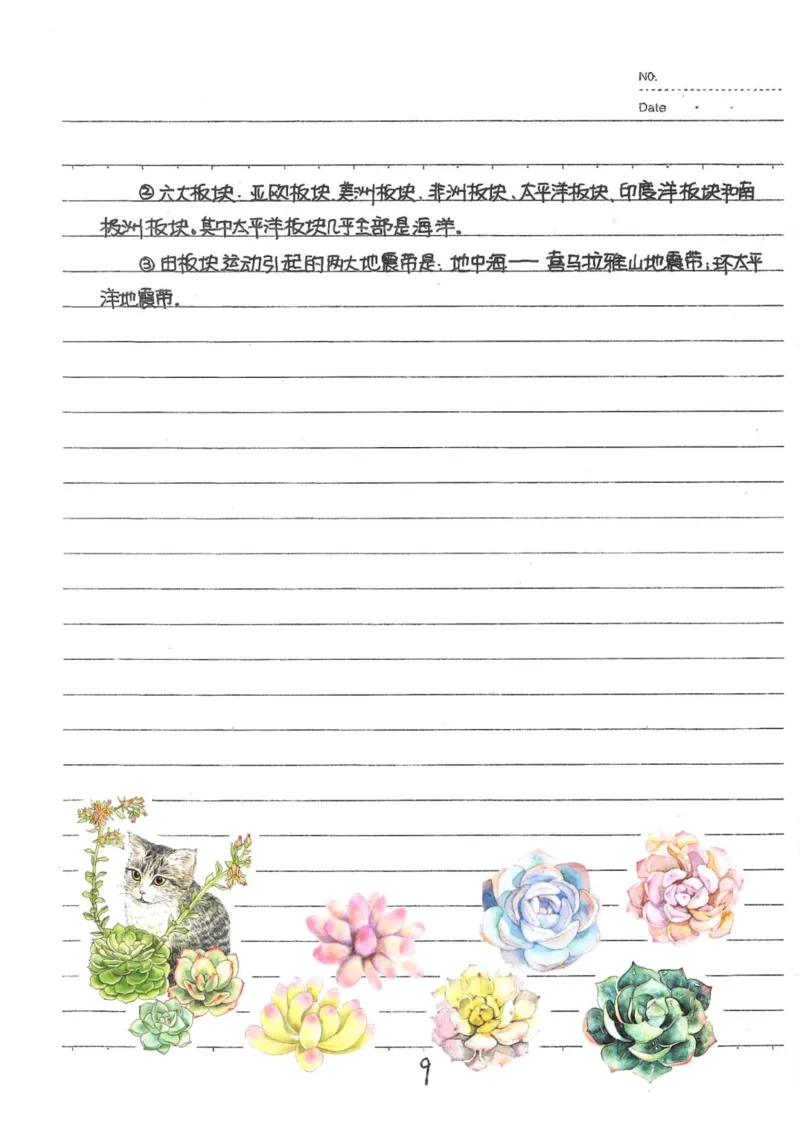 NO.
Date
②六大板块：亚欧板块、美洲板块、非洲板块、太平洋板块、印度洋板块和南
极洲板块。其中太平洋板块几乎全部是海洋。
③由板块运动引起的两大地震带是：地中海——喜马拉雅山地震带；环太平
洋地震带。
9